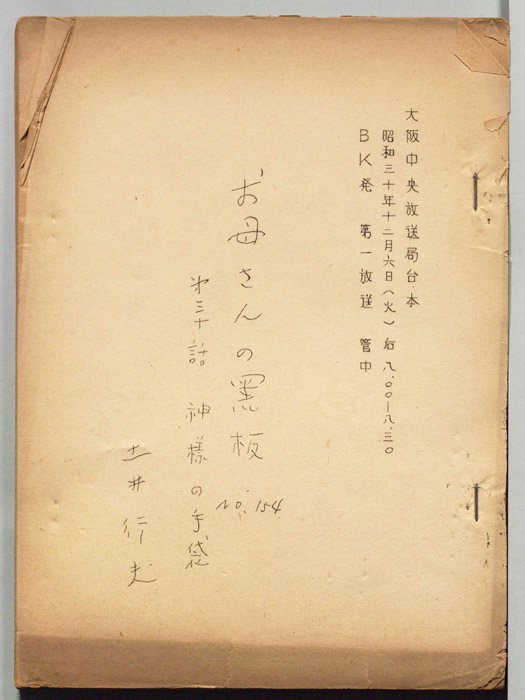 大阪中央放送局台本
昭和三十年十二月六日(火)后八.〇〇―八.三〇
BK発 第一放送 管中
お母さんの黒板
No. 154
第三十話 神様の手袋
土井行夫